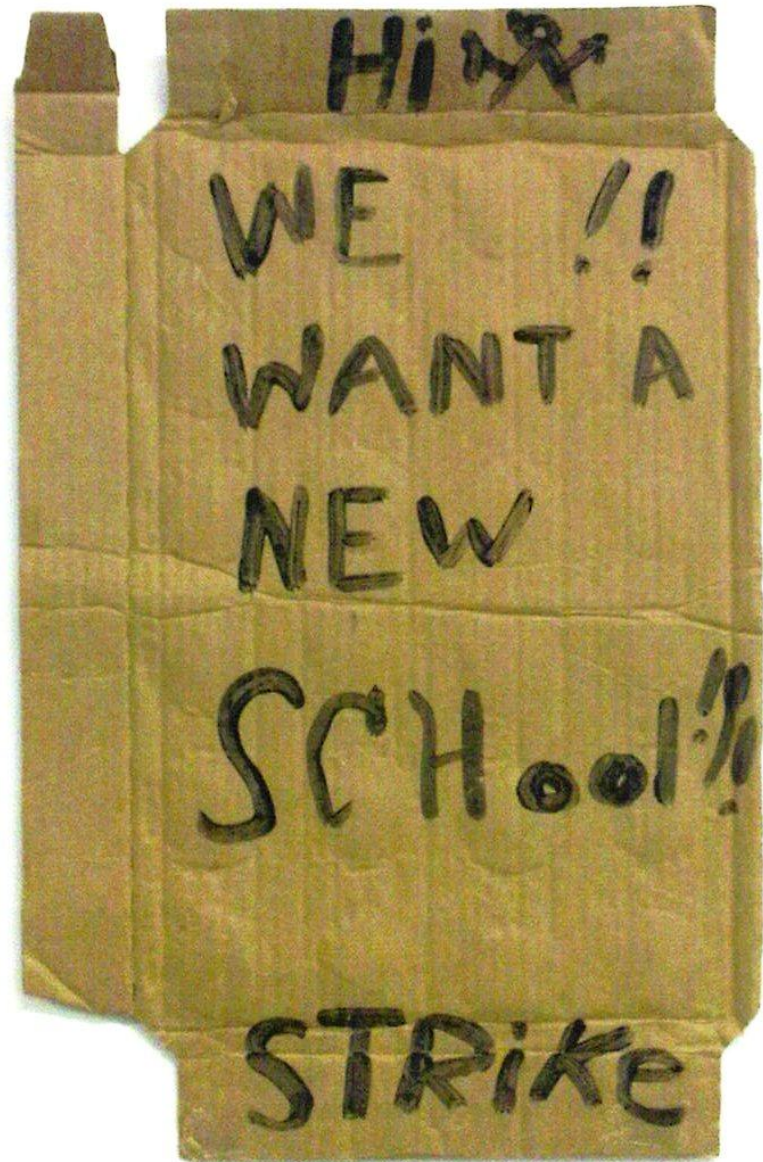 Hi
WE !!
WANT A
NEW
SCHool!!!
STRiKe